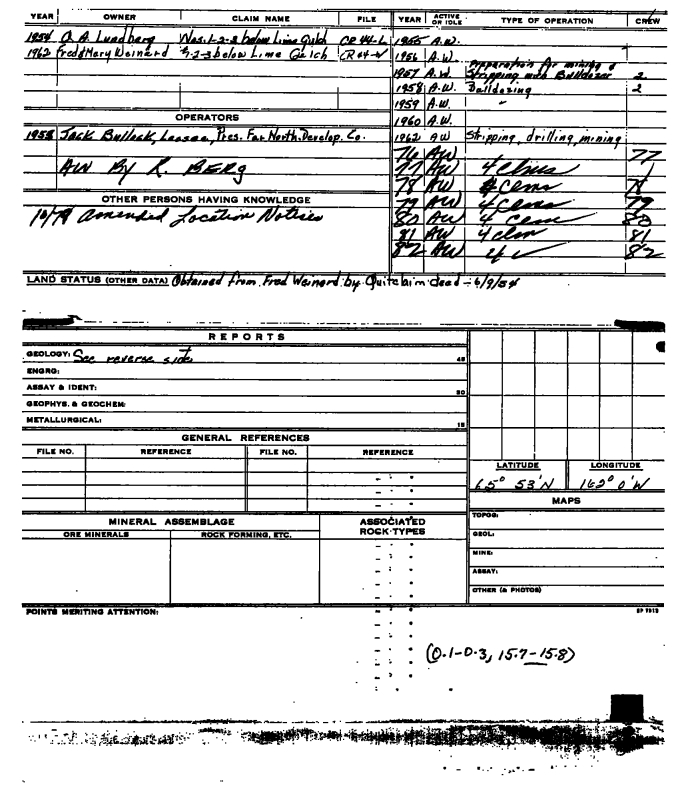 YEAR OWNER CLAIM NAME FILE YEAR ACTIVE OR IDLE TYPE OF OPERATION CREW
1954 O. A. Lundberg Nos. 1-2-3 below Lime Gulch CR 44-L 1955 A.W.
1962 Fred & Mary Weinard 1-2-3 below Lime Gulch CR 64-W 1956 A.W.
preparation for mining &
1957 A.W. Stripping with Bulldozer 2
1958 A.W. Bulldozing 2
1959 A.W. "
OPERATORS 1960 A.W.
1958 Jack Bullock, Leasee, Pres. Far North. Develop. Co. 1962 AW Stripping, drilling, mining
76 AW 77
AW By R. BERg 77 AW 4 Clms
78 AW 4 Clms 78
OTHER PERSONS HAVING KNOWLEDGE 79 AW 4 Clms 79
10/79 Amended Location Notices 80 AW 4 Clms 80
81 AW 4 clm 81
82 AW 4 ✓ 82
LAND STATUS (OTHER DATA) Obtained from Fred Weinard by Quitclaim deed - 6/9/54
REPORTS
GEOLOGY: See reverse side 45
ENGRG:
ASSAY & IDENT: 30
GEOPHYS. & GEOCHEM:
METALLURGICAL: 15
GENERAL REFERENCES
FILE NO. REFERENCE FILE NO. REFERENCE
LATITUDE LONGITUDE
65° 53' N 162° 0' W
MAPS
MINERAL ASSEMBLAGE ASSOCIATED ROCK TYPES TOPOG:
ORE MINERALS ROCK FORMING, ETC. GEOL:
MINE:
ASSAY:
OTHER (& PHOTOS)
POINTS MERITING ATTENTION:
(0.1-0.3, 15.7-15.8)